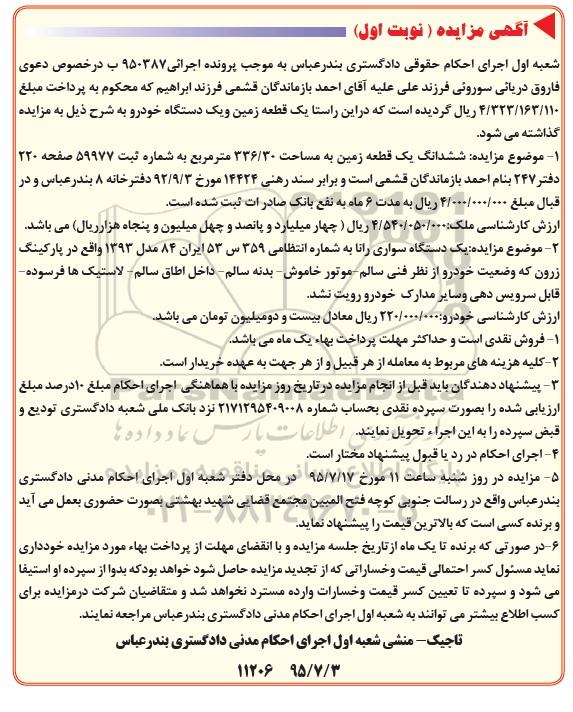 آگهی مزایده ( نوبت اول)
شعبه اول اجرای احکام حقوقی دادگستری بندرعباس به موجب پرونده اجرائی۹۵۰۳۸۷ ب درخصوص دعوی
فاروق دریائی سورونی فرزند علی علیه آقای احمد بازماندگان قشمی فرزند ابراهیم که محکوم به پرداخت مبلغ
۴/۳۲۳/۱۶۳/۱۱۰ ریال گردیده است که دراین راستا یک قطعه زمین ویک دستگاه خودرو به شرح ذیل به مزایده
گذاشته می شود.
۱- موضوع مزایده: ششدانگ یک قطعه زمین به مساحت ۳۳۶/۳۰ مترمربع به شماره ثبت ۵۹۹۷۷ صفحه ۲۲۰
دفتر۲۴۷ بنام احمد بازماندگان قشمی است و برابر سند رهنی ۱۴۴۲۴ مورخ ۹۲/۹/۳ دفترخانه ۸ بندرعباس و در
قبال مبلغ ۴/۰۰۰/۰۰۰/۰۰۰ ریال به مدت ۶ ماه به نفع بانک صادر ات ثبت شده است.
ارزش کارشناسی ملک:۴/۵۴۰/۰۵۰/۰۰۰ ریال ( چهار میلیارد و پانصد و چهل میلیون و پنجاه هزارریال) می باشد.
۲- موضوع مزایده:یک دستگاه سواری رانا به شماره انتظامی ۳۵۹ س ۵۳ ایران ۸۴ مدل ۱۳۹۳ واقع در پارکینگ
زرون که وضعیت خودرو از نظر فنی سالم-موتور خاموش- بدنه سالم- داخل اطاق سالم- لاستیک ها فرسوده-
قابل سرویس دهی وسایر مدارک خودرو رویت نشد.
ارزش کارشناسی خودرو:۲۲۰/۰۰۰/۰۰۰ ریال معادل بیست و دومیلیون تومان می باشد.
۱- فروش نقدی است و حداکثر مهلت پرداخت بهاء یک ماه می باشد.
۲-کلیه هزینه های مربوط به معامله از هر قبیل و از هر جهت به عهده خریدار است.
۳- پیشنهاد دهندگان باید قبل از انجام مزایده در تاریخ روز مزایده با هماهنگی اجرای احکام مبلغ ۱۰درصد مبلغ
ارزیابی شده را بصورت سپرده نقدی بحساب شماره ۲۱۷۱۲۹۵۴۰۹۰۰۸ نزد بانک ملی شعبه دادگستری تودیع و
قبض سپرده را به این اجراء تحویل نمایند.
۴- اجرای احکام در رد یا قبول پیشنهاد مختار است.
۵- مزایده در روز شنبه ساعت ۱۱ مورخ ۹۵/۷/۱۷ در محل دفتر شعبه اول اجرای احکام مدنی دادگستری
بندرعباس واقع در رسالت جنوبی کوچه فتح المبین مجتمع قضایی شهید بهشتی بصورت حضوری بعمل می آید
و برنده کسی است که بالاترین قیمت را پیشنهاد نماید.
۶-در صورتی که برنده تا یک ماه ازتاریخ جلسه مزایده و با انقضای مهلت از پرداخت بهاء مورد مزایده خودداری
نماید مسئول کسر احتمالی قیمت وخساراتی که از تجدید مزایده حاصل شود خواهد بودکه بدوا از سپرده او استیفا
می شود و سپرده تا تعیین کسر قیمت وخسارات وارده مسترد نخواهد شد و متقاضیان شرکت درمزایده برای
کسب اطلاع بیشتر می توانند به شعبه اول اجرای احکام مدنی دادگستری بندرعباس مراجعه نمایند.
تاجیک- منشی شعبه اول اجرای احکام مدنی دادگستری بندرعباس
۹۵/۷/۳ ۱۱۲۰۶
ParsNamadData
پایگاه اطلاع رسانی مناقصه و مزایده
۰۲۱-۸۸۳۴۹۶۷۰-۵